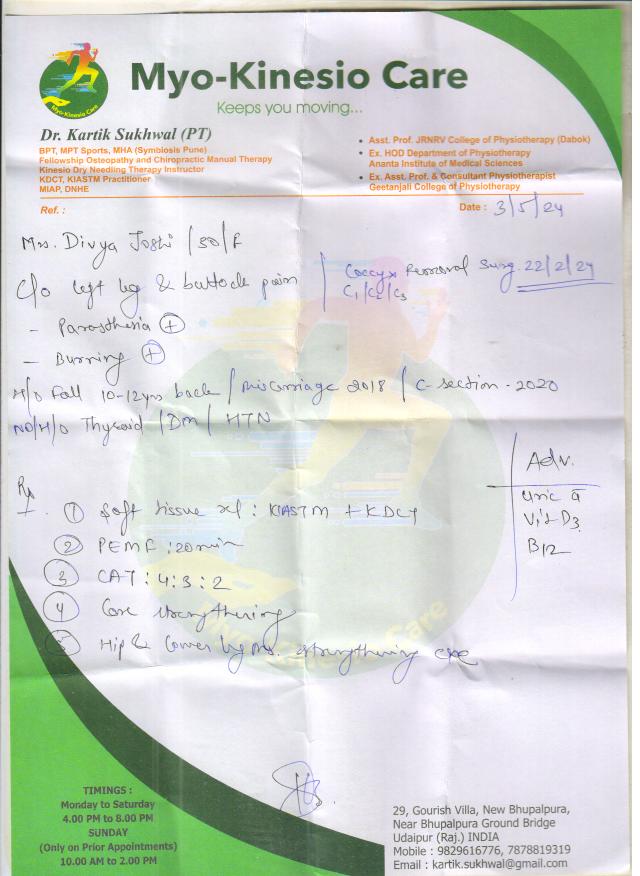 Myo-Kinesio Care
Myo-Kinesio Care
Keeps you moving...
Dr. Kartik Sukhwal (PT)
BPT, MPT Sports, MHA (Symbiosis Pune)
Fellowship Osteopathy and Chiropractic Manual Therapy
Kinesio Dry Needling Therapy Instructor
KDCT, KIASTM Practitioner
MIAP, DNHE
• Asst. Prof. JRNRV College of Physiotherapy (Dabok)
• Ex. HOD Department of Physiotherapy
Ananta Institute of Medical Sciences
• Ex. Asst. Prof. & Consultant Physiotherapist
Geetanjali College of Physiotherapy
Ref. :
Date : 3/5/24
Mrs. Divya Joshi /30/F
C/o left leg & buttock pain
Coccyx Removal Surg. 22/2/24
C1/C2/C3
- Parasthesia +
- Burning +
H/o Fall 10-12yrs back / Miscarriage 2018 / C-section - 2020
NO/H/o Thyroid / DM / HTN
Rx
① Soft tissue rel : KIASTM + KDCT
② PEMF : 20 min
③ CAT : 4:3:2
④ Core strengthening
⑤ Hip & Lower leg ms. strengthening exe
Adv.
Uric a
Vit D3
B12
Myo-Kinesio Care
TIMINGS :
Monday to Saturday
4.00 PM to 8.00 PM
SUNDAY
(Only on Prior Appointments)
10.00 AM to 2.00 PM
29, Gourish Villa, New Bhupalpura,
Near Bhupalpura Ground Bridge
Udaipur (Raj.) INDIA
Mobile : 9829616776, 7878819319
Email : kartik.sukhwal@gmail.com